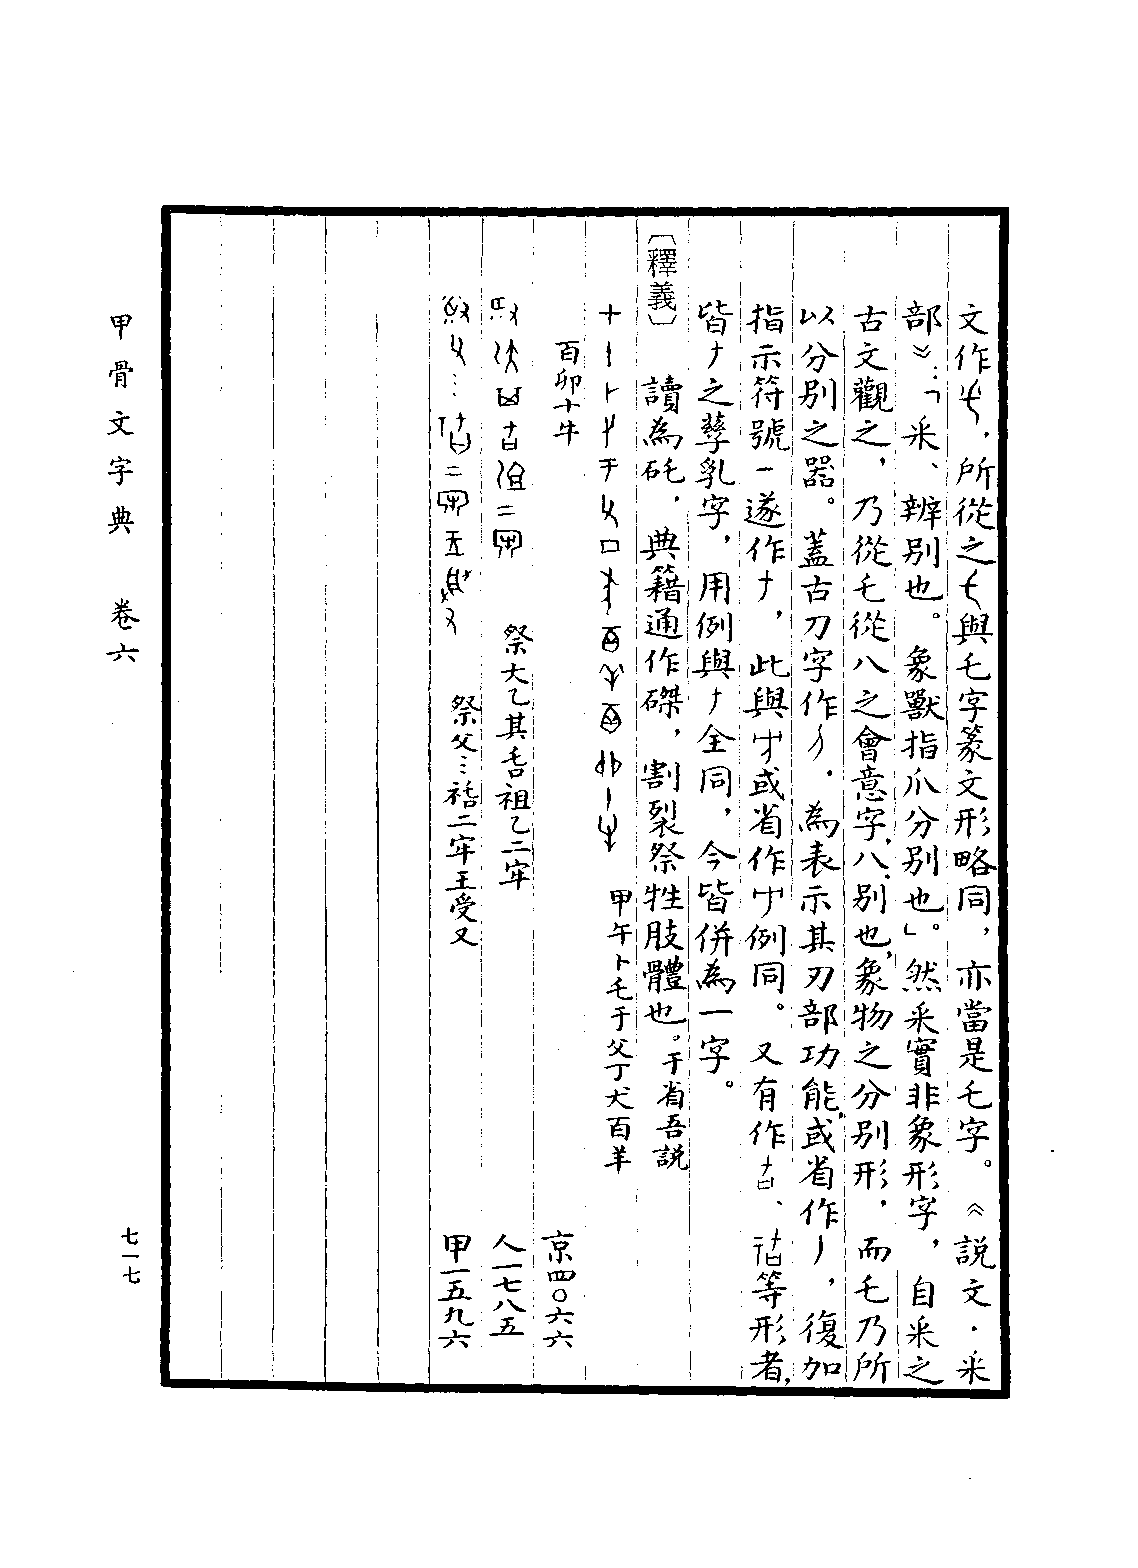 文作，所從之與乇字篆文形略同，亦當是乇字。《說文·釆
部》：「釆、辨別也。象獸指爪分別也」。然釆實非象形字，自釆之
古文觀之，乃從乇從八之會意字，八，別也，象物之分別形，而乇乃所
以分別之器。蓋古刀字作，為表示其刃部功能，或省作，復加
指示符號一遂作，此與或省作例同。又有作、等形者，
皆之孳乳字，用例與全同，今皆併為一字。
〔釋義〕讀為矺，典籍通作磔，割裂祭牲肢體也。于省吾說
甲午卜乇于父丁犬百羊
百卯十牛 京四〇六六
祭大乙其舌祖乙二牢 人一七八五
祭父…䄆二牢王受又 甲一五九六
甲骨文字典 卷六 七一七